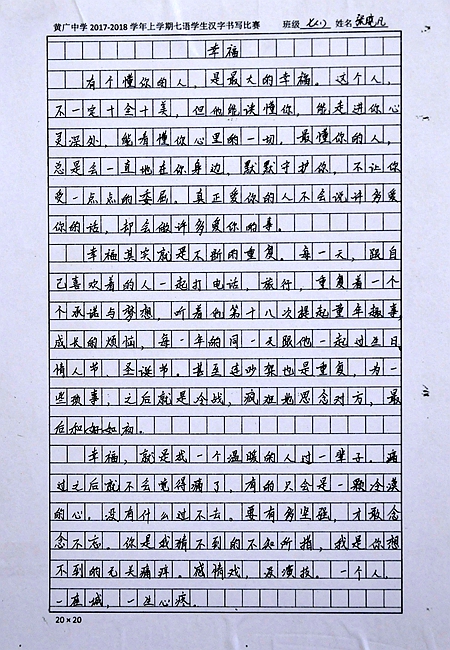 黄广中学2017-2018学年上学期七语学生汉字书写比赛 班级 七(1) 姓名 张晓凡
幸福
有个懂你的人，是最大的幸福。这个人，
不一定十全十美，但他能读懂你，能走进你心
灵深处，能看懂你心里的一切。最懂你的人，
总是会一直地在你身边，默默守护你，不让你
受一点点的委屈。真正爱你的人不会说许多爱
你的话，却会做许多爱你的事。
幸福其实就是不断的重复。每一天，跟自
己喜欢着的人一起打电话，旅行，重复着一个
个承诺与梦想，听着他第十八次提起童年趣事，
成长的烦恼，每一年的同一天跟他一起过生日，
情人节、圣诞节。甚至连吵架也是重复，为一
些琐事，之后就是冷战，疯狂地思念对方，最
后和好如初。
幸福，就是找一个温暖的人过一辈子。痛
过之后就不会觉得痛了，有的只会是一颗冷漠
的心。没有什么过不去。要有多坚强，才敢念
念不忘。你是我猜不到的不知所措，我是你想
不到的无关痛痒。感情戏，没演技。一个人，
一座城，一生心疼。
20×20